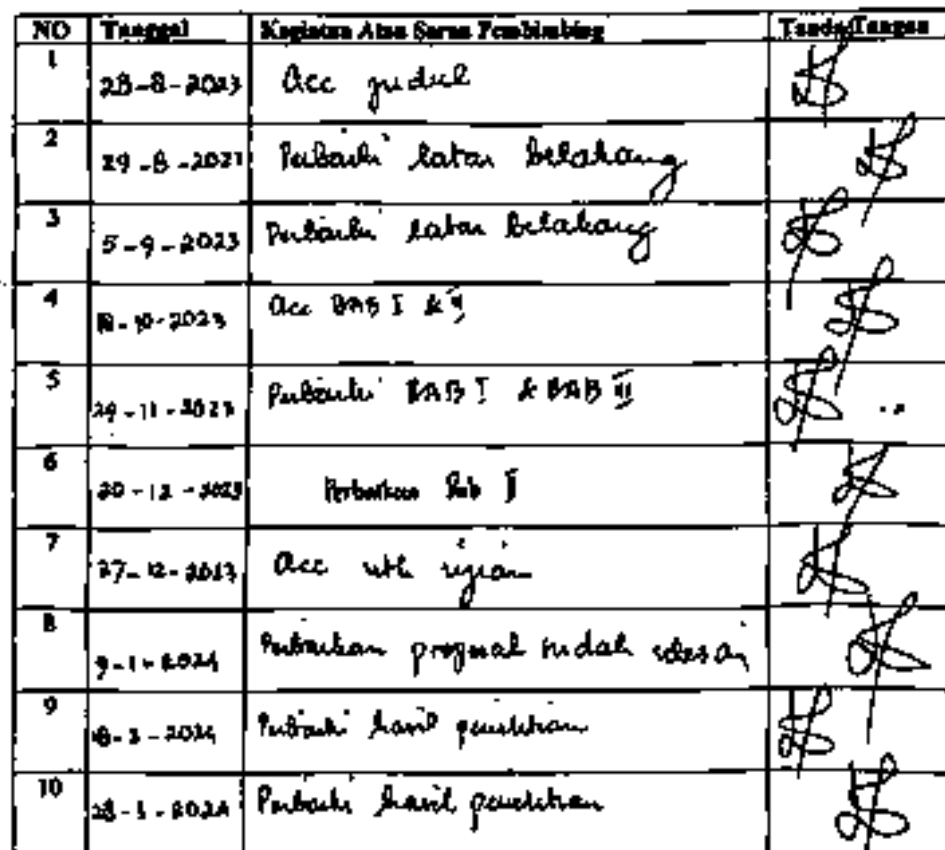 NO Tanggal Kegiatan Atau Saran Pembimbing Tanda Tangan
1 28-8-2023 Acc judul
2 29-8-2023 Perbaiki latar belakang
3 5-9-2023 Perbaiki latar belakang
4 -10-2023 Acc BAB I & II
5 29-11-2023 Perbaiki BAB I & BAB
6 20-12-2023 Perbaikan Bab II
7 27-12-2023 Acc utk ujian
8 9-1-2024 Perbaikan proposal sudah selesai
9 -2024 Perbaiki hasil penelitian
10 2024 Perbaiki hasil penelitian